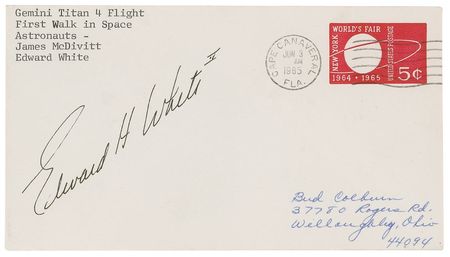 Gemini Titan 4 Flight
First Walk in Space
Astronauts -
James McDivitt
Edward White
CAPE CANAVERAL
JUN 3
AM
1965
FLA.
NEW YORK
WORLD'S FAIR
UNITED STATES POSTAGE
1964 · 1965
5¢
Edward H White II
Bud Colburn
37780 Rogers Rd.
Willoughby, Ohio
44094